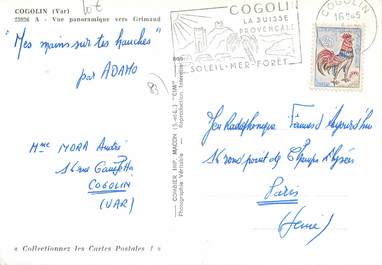 COGOLIN (Var)
23926 A - Vue panoramique vers Grimaud
"Mes mains sur tes hanches"
par ADAMO
Mme MORA André
16 rue Gambetta
COGOLIN
(VAR)
« Collectionnez les Cartes Postales ! »
COMBIER IMP. MACON (S.-et-L.) "CIM"
Photographie Véritable - Reproduction Interdite
COGOLIN
LA SUISSE
PROVENÇALE
SOLEIL-MER-FORÊT
COGOLIN
Jeu Radiophonique Femmes d'Aujourd'hui
16 rond point des Champs Elysées
Paris
(Seine)
83